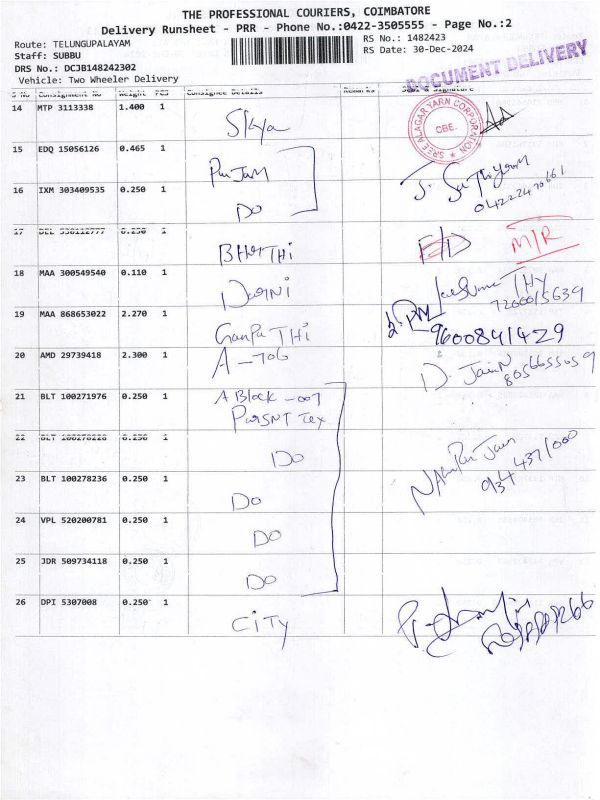 THE PROFESSIONAL COURIERS, COIMBATORE
Delivery Runsheet - PRR - Phone No.:0422-3505555 - Page No.:2
Route: TELUNGUPALAYAM
RS No.: 1482423
Staff: SUBBU
RS Date: 30-Dec-2024
DRS No.: DCJB148242302
Vehicle: Two Wheeler Delivery
DOCUMENT DELIVERY
S No Consignment No Weight PCS Consignee Details Remarks Seal & Signature
14 MTP 3113338 1.400 1
SREE ALAGAR YARN CORPORATION
CBE.
15 EDQ 15056126 0.465 1
16 IXM 303409535 0.250 1 DO
17 DEL 538112777 0.250 1 BHARTHI
M/R
18 MAA 300549540 0.110 1
19 MAA 868653022 2.270 1
9600841429
20 AMD 29739418 2.300 1 A-706
D. Jain
8056655059
21 BLT 100271976 0.250 1 A Block -007
22 BLT 100278228 0.250 1 DO
23 BLT 100278236 0.250 1 DO
24 VPL 520200781 0.250 1 DO
25 JDR 509734118 0.250 1 DO
26 DPI 5307008 0.250 1 CITY